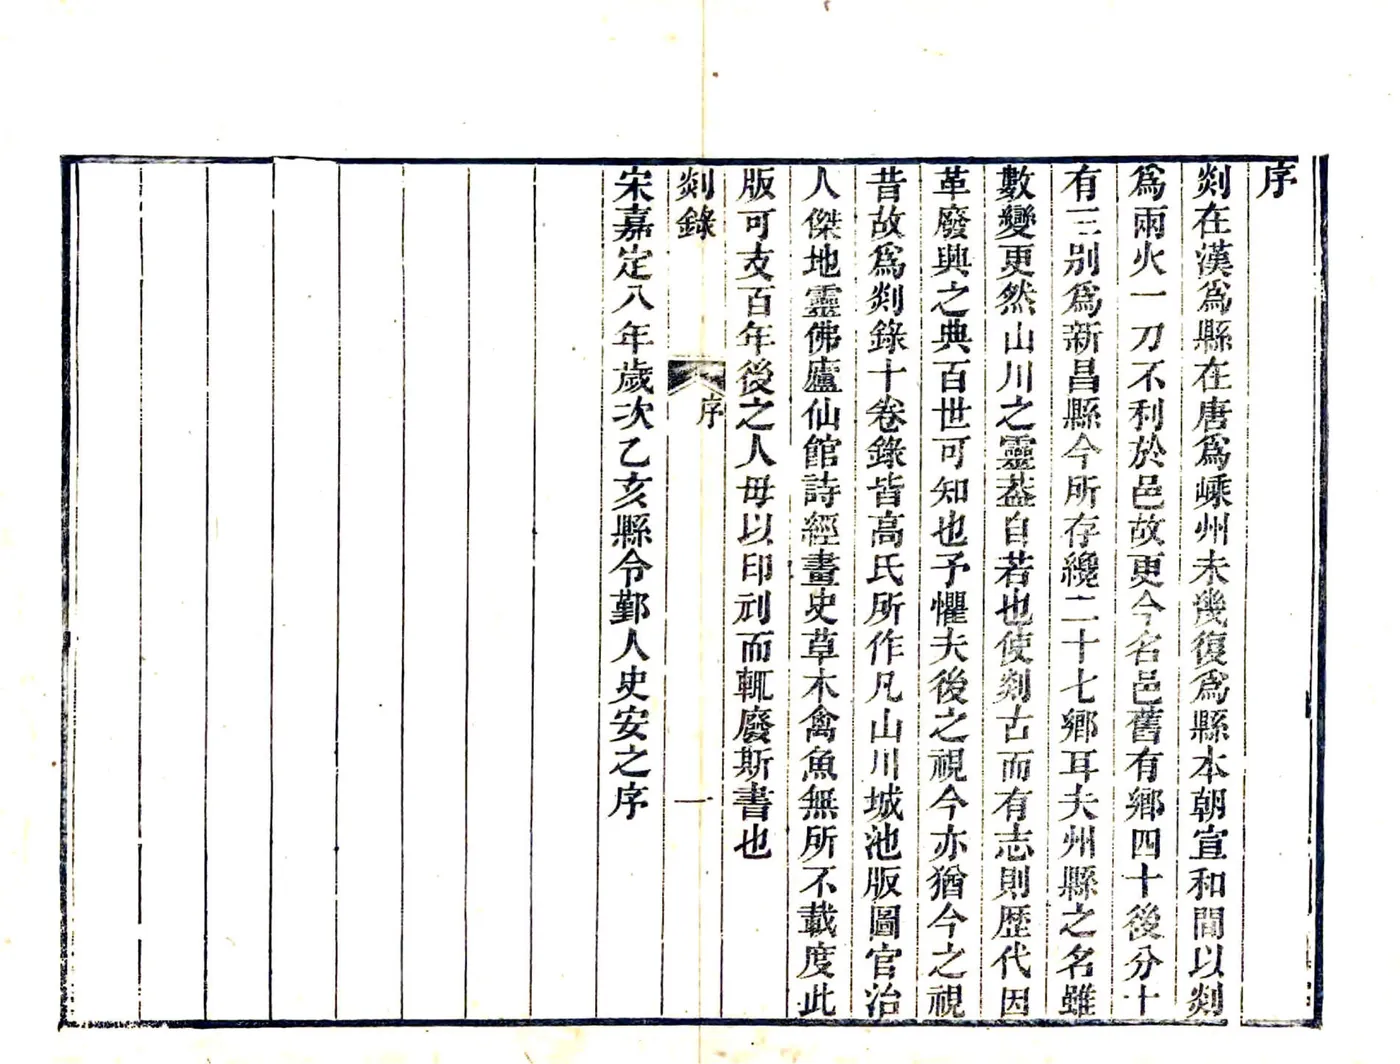 序
剡在漢爲縣在唐爲嵊州未幾復爲縣本朝宣和間以剡
爲兩火一刀不利於邑故更今名邑舊有鄉四十後分十
有三别爲新昌縣今所存纔二十七鄉耳夫州縣之名雖
數變更然山川之靈葢自若也使剡古而有志則歴代因
革廢興之典百世可知也予懼夫後之視今亦猶今之視
昔故爲剡錄十卷錄皆高氏所作凡山川城池版圖官治
人傑地靈佛廬仙館詩經畫史草木禽魚無所不載度此
版可支百年後之人毋以印刓而輒廢斯書也
剡錄
序
一
宋嘉定八年歲次乙亥縣令鄞人史安之序